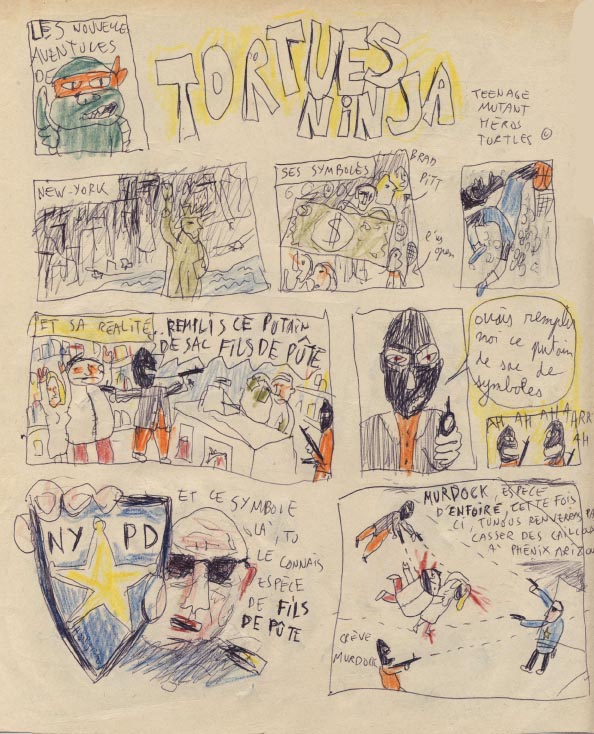 LES NOUVELLES
AVENTURES
DE
TORTUES
NINJA
TEENAGE
MUTANT
HÉROS
TURTLES ©
NEW-YORK
SES SYMBOLES
BRAD
PITT
$
l'us
open
ET SA RÉALITÉ...
REMPLIS CE PUTAIN
DE SAC FILS DE PÛTE
ouais remplis
moi ce putain
de sac de
symboles
AH AH AH AH AHRR
AH
NY PD
ET CE SYMBOLE
LÀ, TU
LE CONNAIS
ESPÈCE
DE FILS
DE PÛTE
MURDOCK, ESPÈCE
D'ENFOIRÉ, CETTE FOIS
CI, TU NOUS RENVERRAS PAS
CASSER DES CAILLOUX
A PHÉNIX ARIZO
CRÈVE
MURDOCK